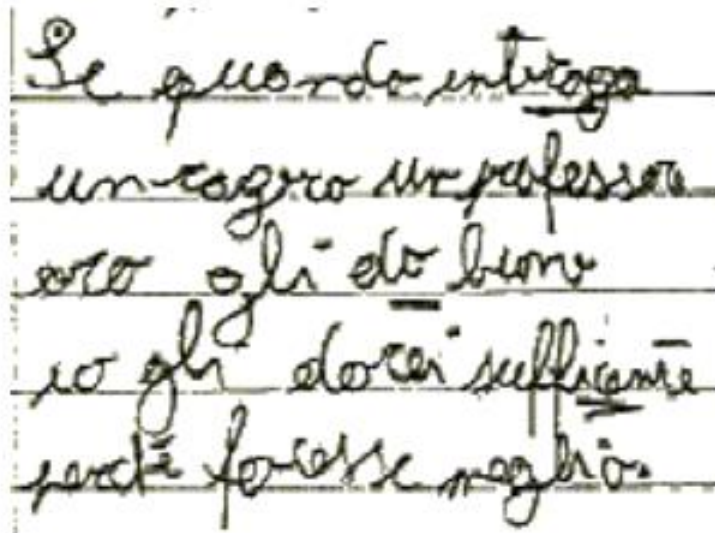 Se quando intrroga
un ragzzo un professor
ero gli do buono
io gli darei sufficente
perchè facesse meglio.